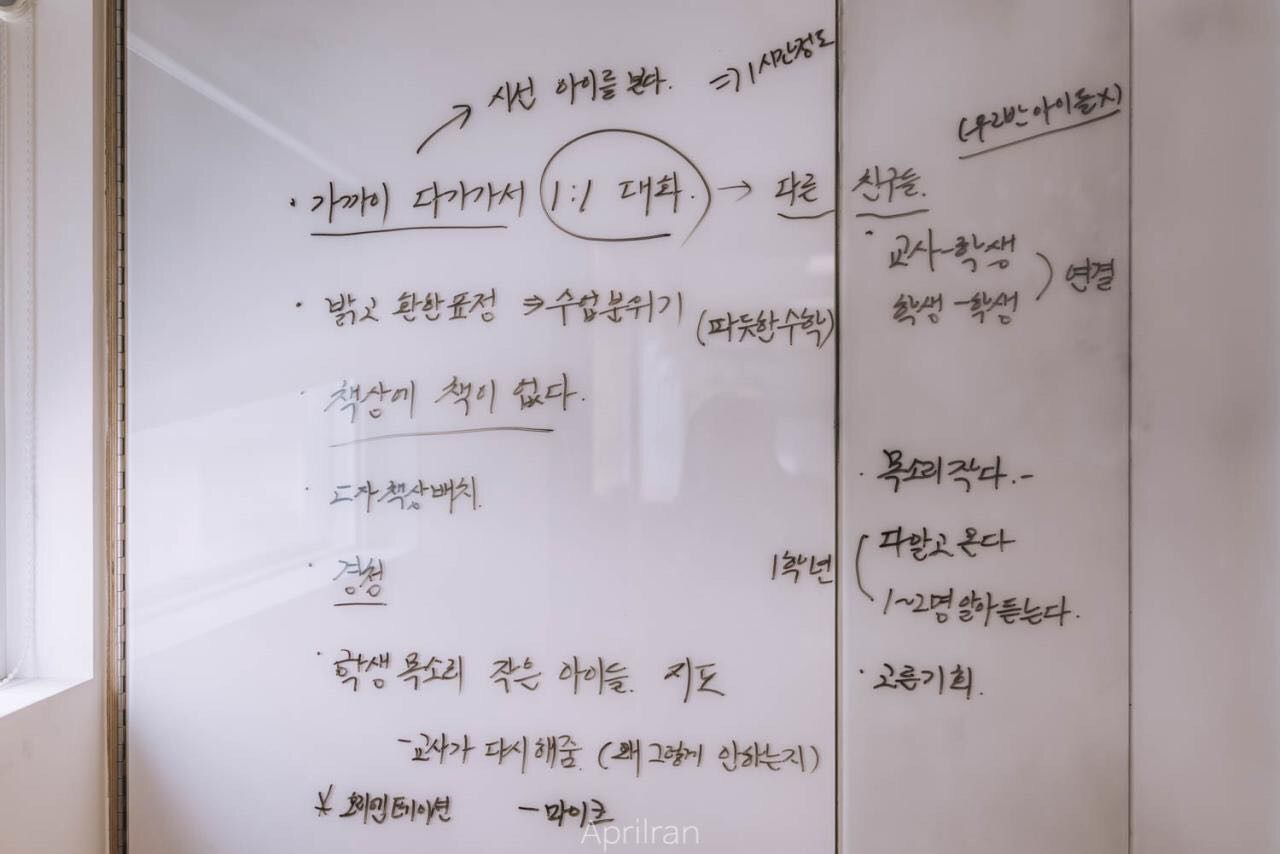 시선 아이를 본다. ⇒ 1시간정도
(우리반아이들X)
· 가까이 다가가서 1:1 대화. → 다른 친구들.
· 교사-학생
학생-학생 ) 연결
· 밝고 환한 표정 ⇒ 수업분위기 (따듯한수학)
· 책상에 책이 없다.
· ㄷ자 책상배치.
· 경청
· 학생 목소리 작은 아이들. 지도
-교사가 다시해줌 (왜 그렇게 안하는지)
* 오리엔테이션 - 마이크
· 목소리 작다.-
1학년 ( 다알고 온다
1~2명 알아듣는다.
· 고른기회.
Aprilran